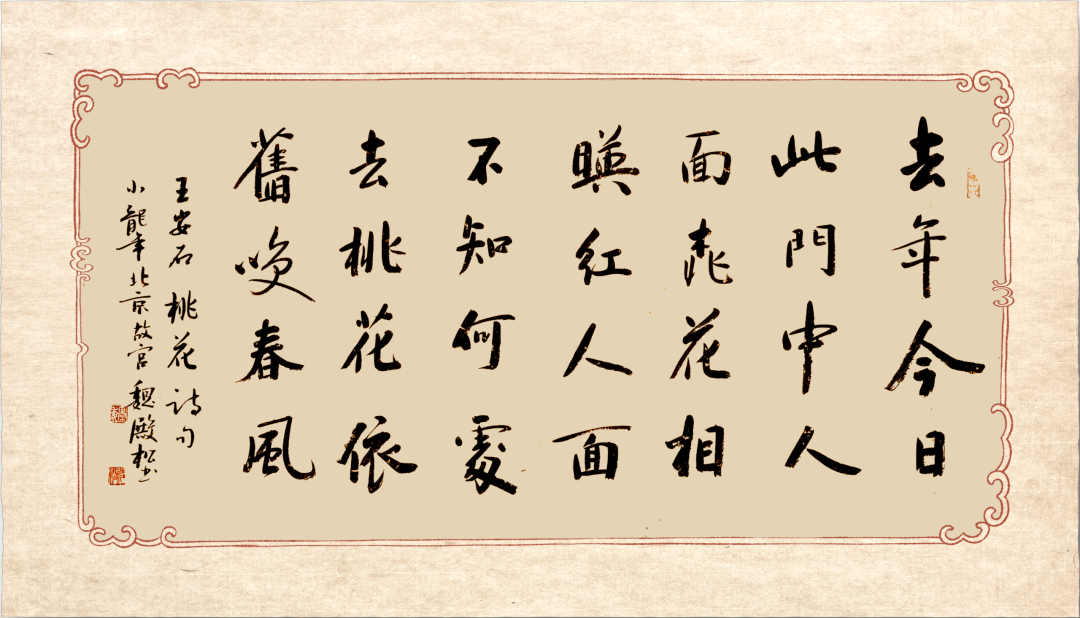 去年今日
此門中人
面桃花相
暎紅人面
不知何處
去桃花依
舊咲春風
王安石 桃花 詩句
小龍年北京故宮 魏殿松书